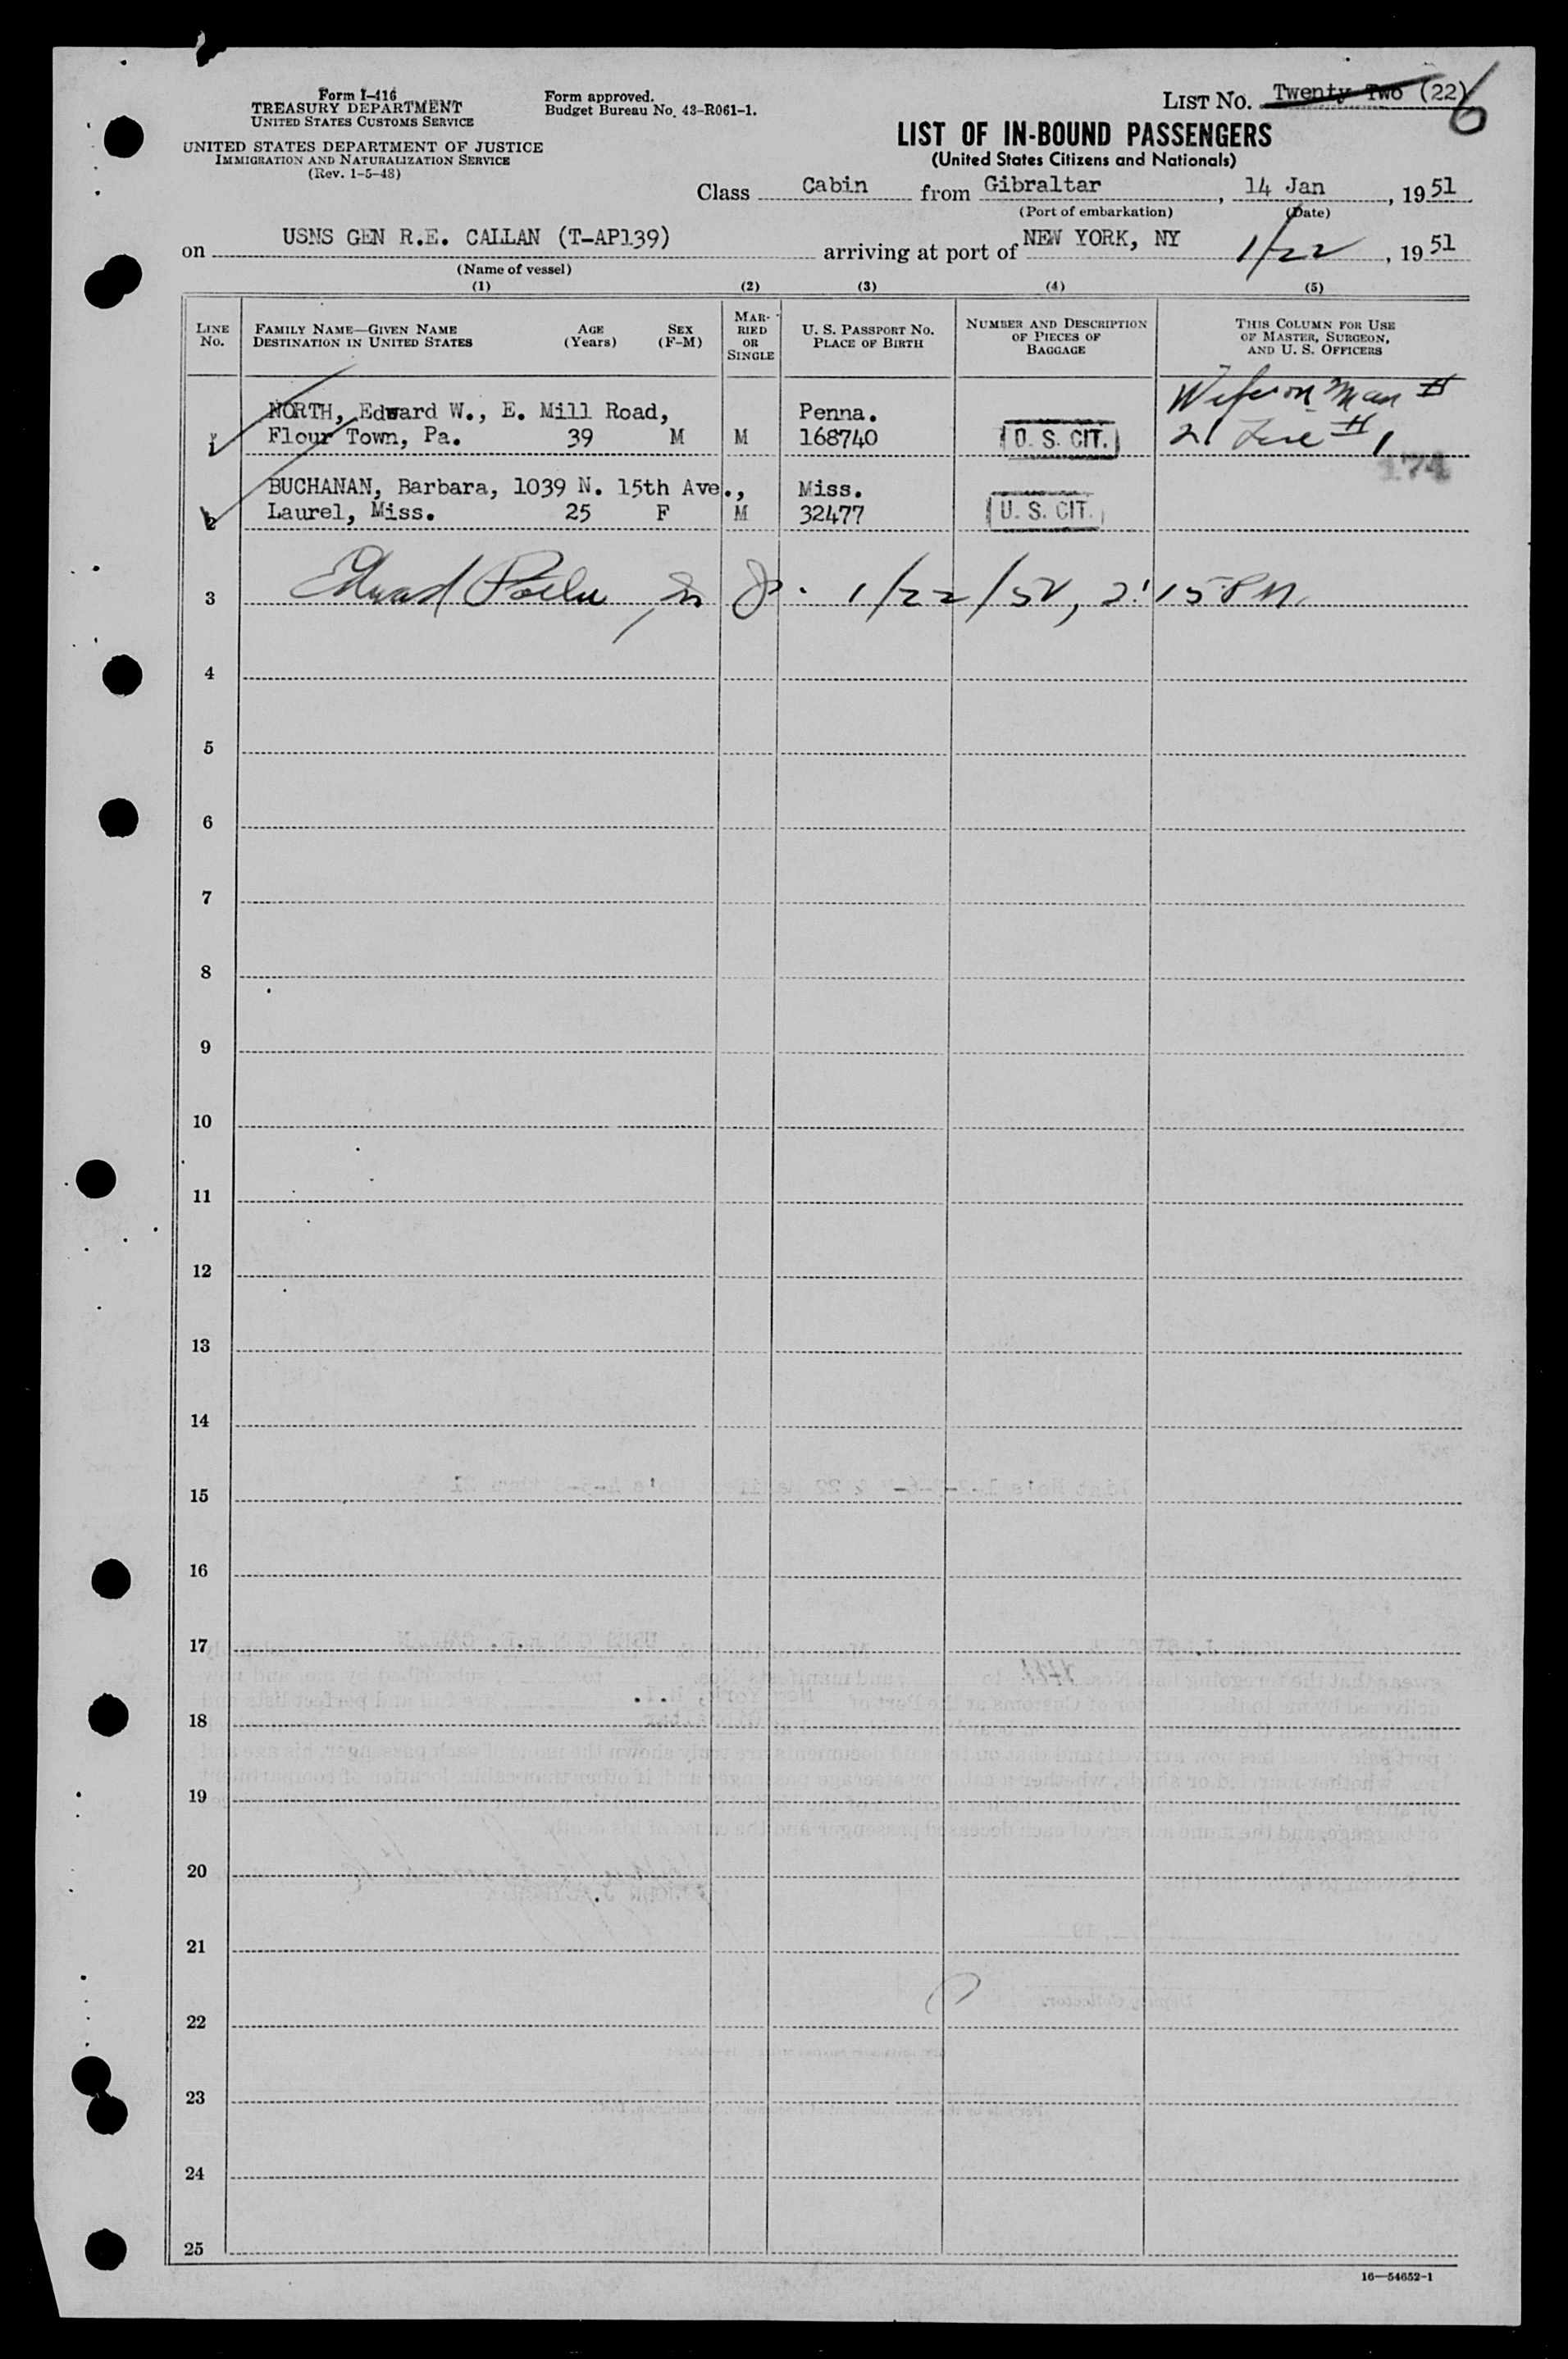 Form I-416
TREASURY DEPARTMENT
UNITED STATES CUSTOMS SERVICE
UNITED STATES DEPARTMENT OF JUSTICE
IMMIGRATION AND NATURALIZATION SERVICE
(Rev. 1-5-48)
Form approved.
Budget Bureau No. 43-R061-1.
LIST NO. Twenty Two (22) 6
LIST OF IN-BOUND PASSENGERS
(United States Citizens and Nationals)
Class Cabin from Gibraltar, 14 Jan, 1951
(Port of embarkation) (Date)
on USNS GEN R.E. CALLAN (T-AP139) arriving at port of NEW YORK, NY 1/22, 1951
(Name of vessel)
(1) (2) (3) (4) (5)
LINE NO.
FAMILY NAME—GIVEN NAME
DESTINATION IN UNITED STATES
AGE (Years)
SEX (F-M)
MARRIED OR SINGLE
U. S. PASSPORT NO.
PLACE OF BIRTH
NUMBER AND DESCRIPTION OF PIECES OF BAGGAGE
THIS COLUMN FOR USE OF MASTER, SURGEON, AND U. S. OFFICERS
NORTH, Edward W., E. Mill Road, Penna. Wife on Man #
1 Flour Town, Pa. 39 M M 168740 U. S. CIT. 21 Line # 1
174
BUCHANAN, Barbara, 1039 N. 15th Ave., Miss.
2 Laurel, Miss. 25 F M 32477 U. S. CIT.
3 Edward 1/22/51, 2:15 PM
4
5
6
7
8
9
10
11
12
13
14
15
16
17
18
19
20
21
22
23
24
25
16—54652-1